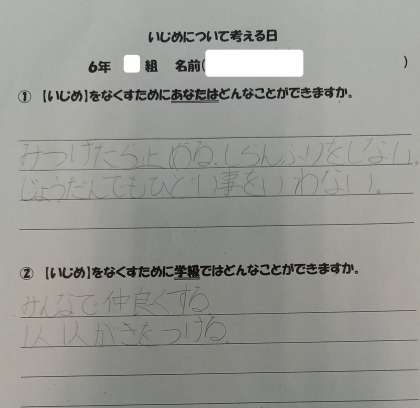 いじめについて考える日
6年 組 名前( )
① 【いじめ】をなくすためにあなたはどんなことができますか。
みつけたら止める。しらんふりをしない。
じょうだんでもひどい事をいわない。
② 【いじめ】をなくすために学級ではどんなことができますか。
みんなで仲良くする
1人1人がきをつける。